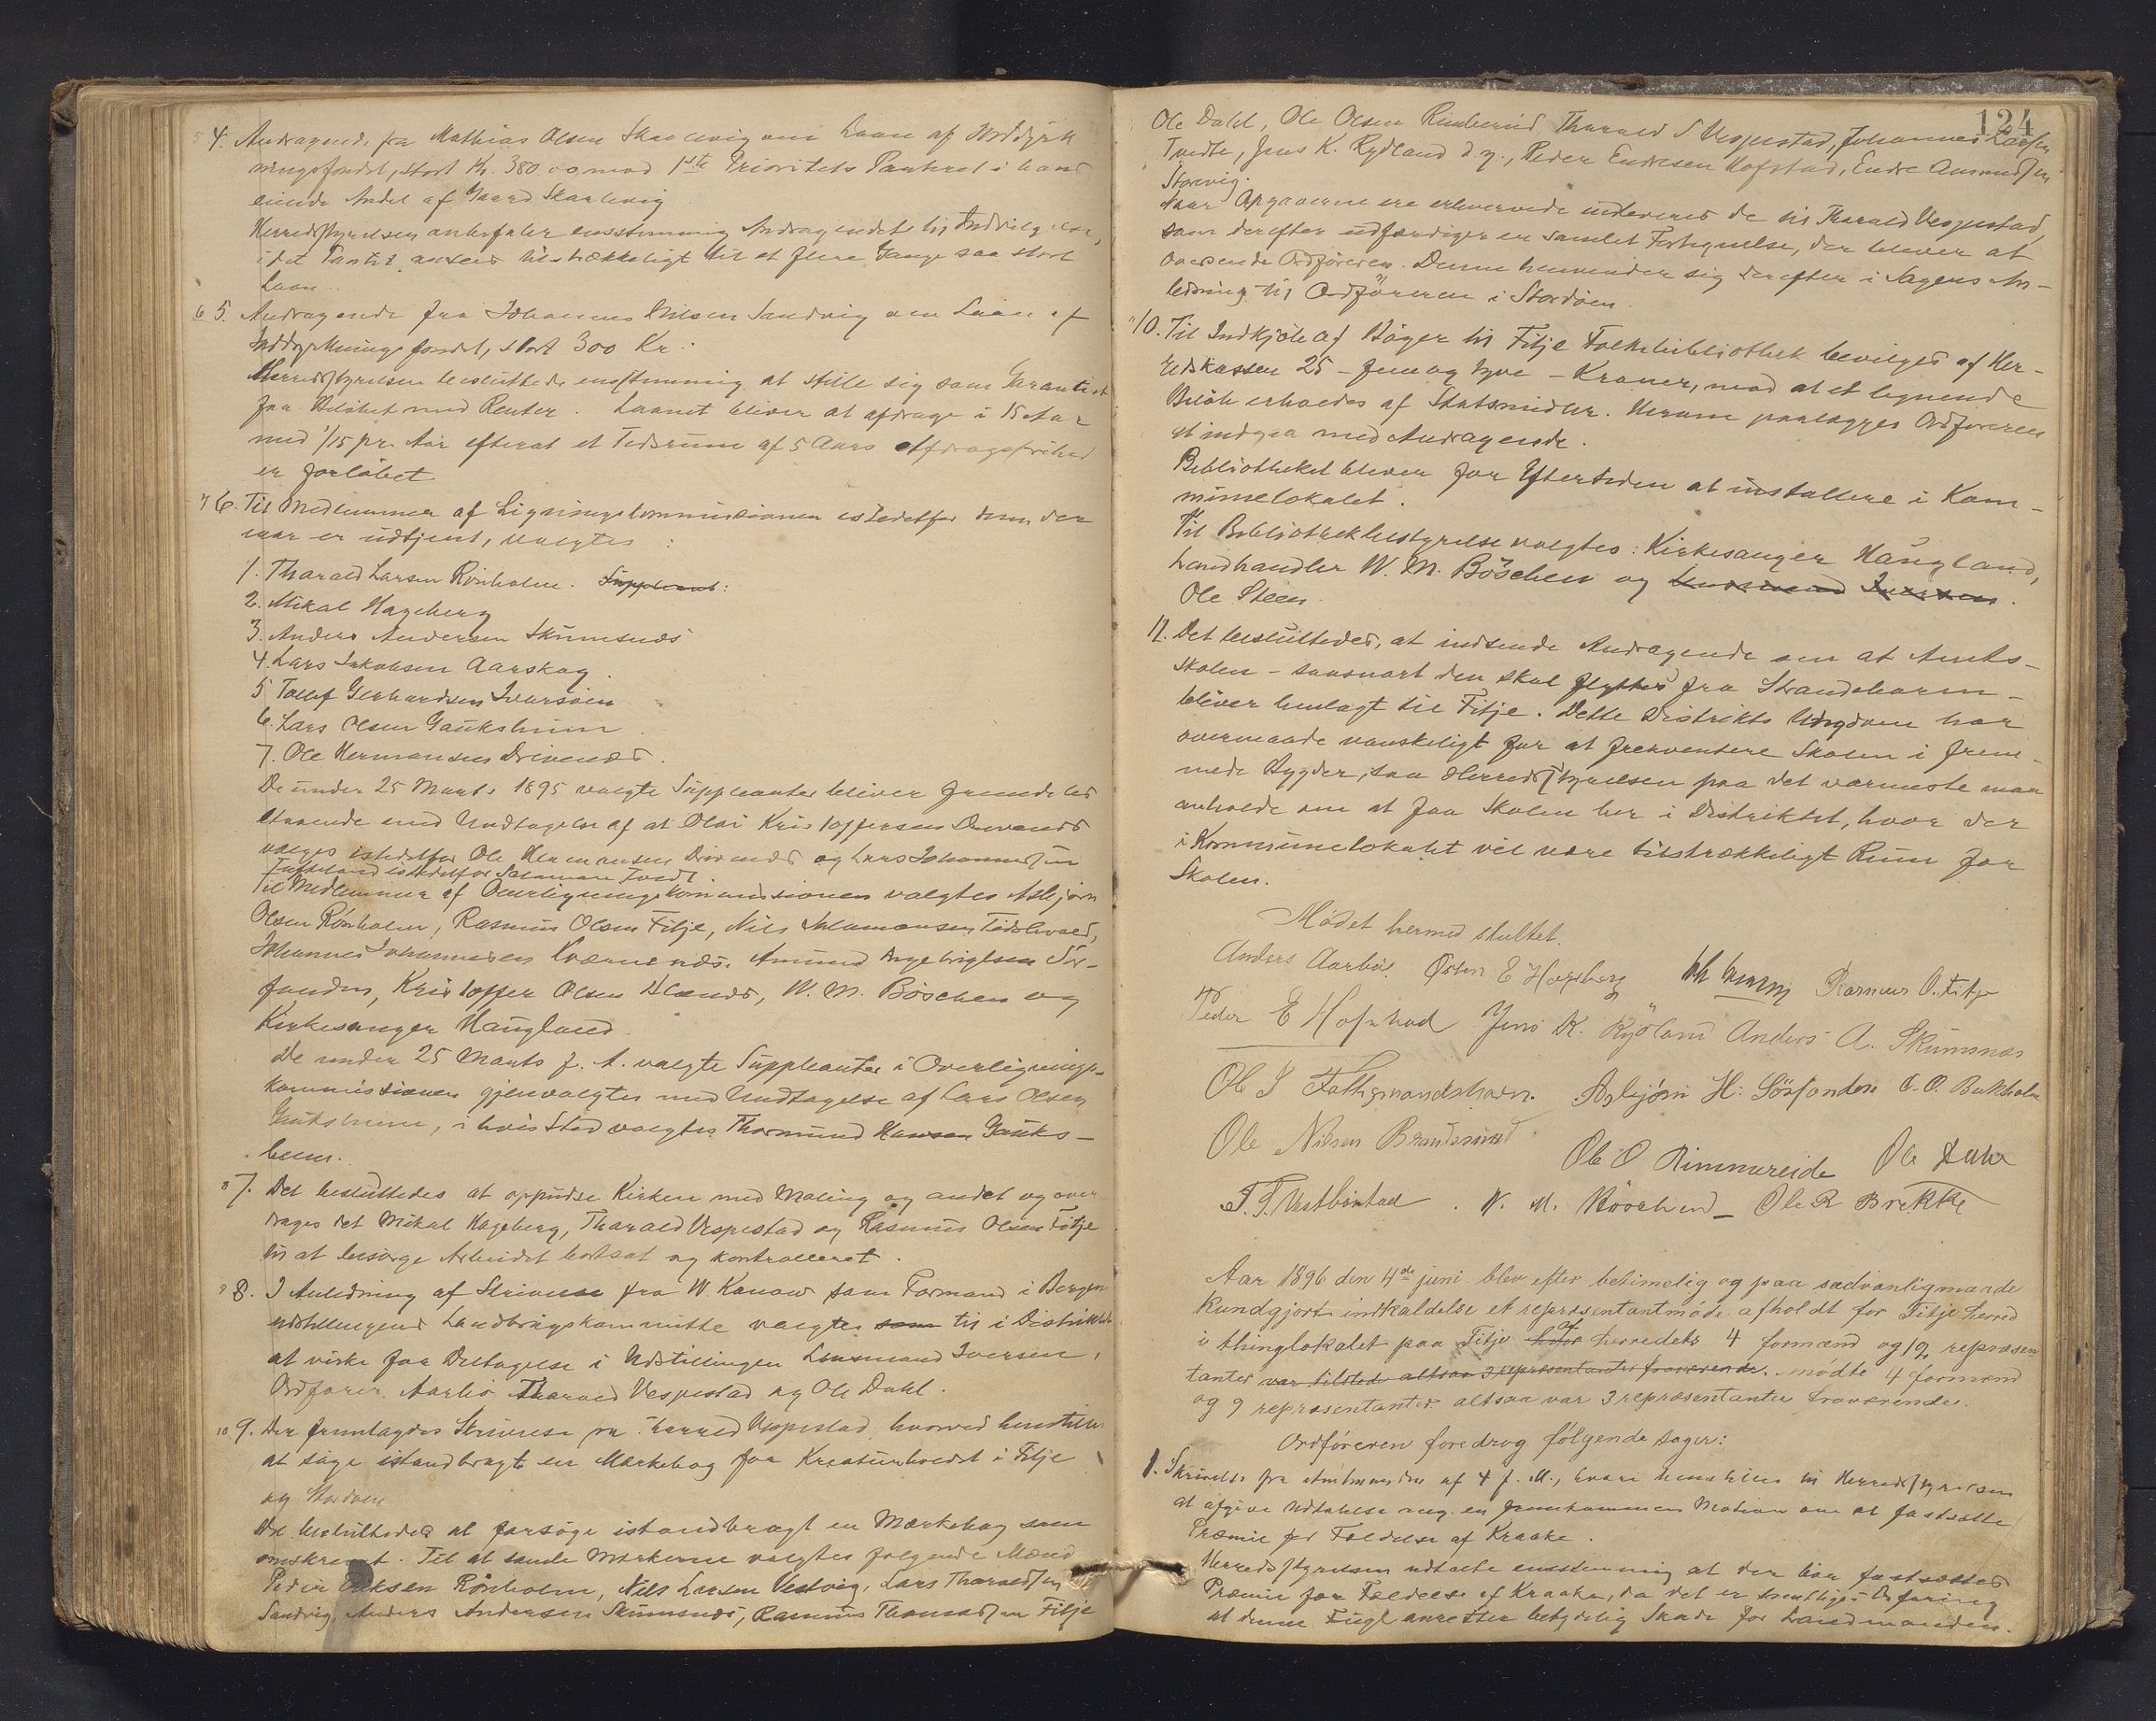 5 4. Andragende fra Mathias Olsen Skaalevig om Laan af Inddyrk
ningsfondet, stort Kr. 380.00 mod 1ste Prioritets Panteret i hans
eiende Andel af Gaard Skaalevig
Herredstyrelsen anbefaler eensstemmig Andragendet til Indvilgelse,
idet Pantet ansees tilstrækkeligt til et flere Gange saa stort
Laan.
6 5. Andragende fra Johannes Nilsen Sandvig om Laan af
Inddyrkningsfondet, stort 300 Kr.
Herredstyrelsen besluttede ensstemmig at stille sig som Garantist
for Beløbet med Renter. Laanet bliver at afdrage i 15 Aar
med 1/15 pr. Aar efterat et Tidsrum af 5 Aars Afdragsfrihed
er forløbet
7 6. Til Medlemmer af Ligningskommissionen istedetfor dem der
iaar er udtjent, valgtes:
1. Tharald Larsen Rønholm. Suppleant:
2. Mikal Hageberg
3. Anders Andersen Skumsnæs
4. Lars Jakobsen Aarskog.
5 Tollef Gerhardsen Ivarsøen
6. Lars Olsen Gaukshium
7. Ole Hermansen Drivenæs.
De under 25 Marts 1895 valgte Suppleanter bliver fremdeles
staaende med Undtagelse af at Olai Kristoffersen Drivenæs
vælges istedetfor Ole Hermansen Drivenæs og Lars Johannessen
istedetfor Salamon Tvedt
Til Medlemmer af Overligningskommissionen valgtes Asbjørn
Olsen Rønholm, Rasmus Olsen Fitje, Nils Salamonsen
Johannes Johannesen Kværnenæs, Amund Ingebrigtsen Sør-
fonden, Kristoffer Olsen Alands, W. M. Böschen og
Kirkesanger Haugland.
De under 25 Marts f. A. valgte Suppleanter i Overlignings-
kommissionen gjenvalgtes med Undtagelse af Lars Olsen
Gaukshium, i hvis Sted valgtes Thormund Hansen Gauks-
heim.
8 7. Det besluttedes at oppudse Kirken med Maling og andet og over
drages det Mikal Hageberg, Tharald Vespestad og Rasmus Olsen Fitje
til at besørge Arbeidet bortsat og kontrolleret.
9 8. I Anledning af Skrivelse fra W. Konow som Formand i Bergens
udstillingens Landbrugskommitte valgtes som til i Distriktet
at virke for Deltagelse i Udstillingen Lensmand Iversen,
Ordfører Aarbø Tharald Vespestad og Ole Dahl.
10 9. Der fremlagdes Skrivelse fra Tharald Vespestad, hvorved henstilles
at søge istandbragt en Mærkebog for Kreaturholdet i Fitje
og Stordøen
Det besluttedes at forsøge istandbragt en Mærkebog som
omskrevet. Til at samle Mærkerne valgtes følgende Mænd
Peder Eriksen Rønholm, Nils Larsen Vestvig, Lars Tharaldsen
Sandvig, Anders Andersen Skumsnæs, Rasmus Thomassen Fitje
124
Ole Dahl, Ole Olsen Rimbereid, Tharald S Vespestad, Johannes Larsen
Tvedte, Jens K. Rydland d.y., Peder Endresen Hofstad, Endre Amundsen
Storevig.
Naar Opgaverne ere erhvervede indleveres de til Tharald Vespestad,
som derefter udfærdiger en samlet Fortegnelse, der bliver at
oversende Ordføreren. Denne henvender sig derefter i Sagens An-
ledning til Ordføreren i Stordøen.
11 10. Til Indkjøb af Bøger til Fitje Folkebibliothek bevilges af Her-
redskassen 25 - fem og tyve - Kroner, mod at et lignende
Beløb erholdes af Statsmidler. Herom paalægges Ordføreren
at indgaa med Andragende.
Bibliotheket bliver for Eftertiden at installere i Kom-
munelokalet.
Til Bibliothekbestyrelse valgtes: Kirkesanger Haugland,
Landhandler W. M. Böschen og Lensmand Iversen.
Ole Steen
11. Det besluttedes, at indsende Andragende om at Amts-
skolen - saasnart den skal flyttes fra Strandebarm -
bliver henlagt til Fitje. Dette Distrikts Ungdom har
overmaade vanskeligt for at frekventere Skolen i frem-
mede Bygder, saa Herredstyrelsen paa det varmeste maa
anholde om at faa Skolen her i Distriktet, hvor der
i Kommunelokalet vil være tilstrækkeligt Rum for
Skolen.
Mødet hermed sluttet.
Anders Aarbø. Østen E Hageberg Rasmus O. Fitje
Peder E Hofstad Jens K. Rydland Anders A. Skumsnæs
Ole J Folkgmandshavn. Asbjørn H: Sørfonden O. O. Bukholm
Ole Nilsen Brandasund
Ole O Rimmereide Ole Dahl
T. T. Vestbøstad. W. M. Böschen - Ole R Brekke
Aar 1896 den 4de juni blev efter betimelig og paa sædvanligmaade
kundgjort indkaldelse et repræsentantmøde afholdt for Fitje herred
i thinglokalet paa Fitje hofor af herredets 4 formænd og 12 repræsen
tanter var tilstede altsaa 3 repræsentanter fraværende. mødte 4 formænd
og 9 repræsentanter altsaa var 3 repræsentanter fraværende.
Ordføreren foredrog følgende sager:
1. Skrivelse fra Amtmanden af 4 f. M., hvori henstilles til Herredstyrelsen
at afgive Udtalelse ang. en fremkommen Motion om at fastsætte
Præmie for Fældelse af Kraake.
Herredstyrelsen udtalte ensstemmig at der bør fastsættes
Præmie for Fældelse af Kraake, da det er Erfaring
at denne Fugl anretter betydelig Skade for Landmanden.